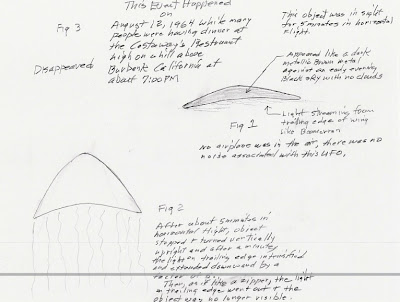 This Event Happened
on
August 12, 1964 while many
people were having dinner at
the Castaway's Restaurant
high on a hill above
Burbank California at
about 7:00 PM
Fig 3
Disappeared
This object was in sight
for 5 minutes in horizontal
flight.
Appeared like a dark
metallic Brown metal
against an early evening
Black sky with no clouds
Light streaming from
trailing edge of wing
like Boomerran
Fig 1
No airplane was in the air, there was no
noise associated with this UFO.
Fig 2
After about 5 minutes in
horizontal flight, object
stopped & turned vertically
upright and after a minute,
the light on trailing edge intensified
and extended downward by a
Then, as if like a zipper, the light
in trailing edge went out & the
object was no longer visible.